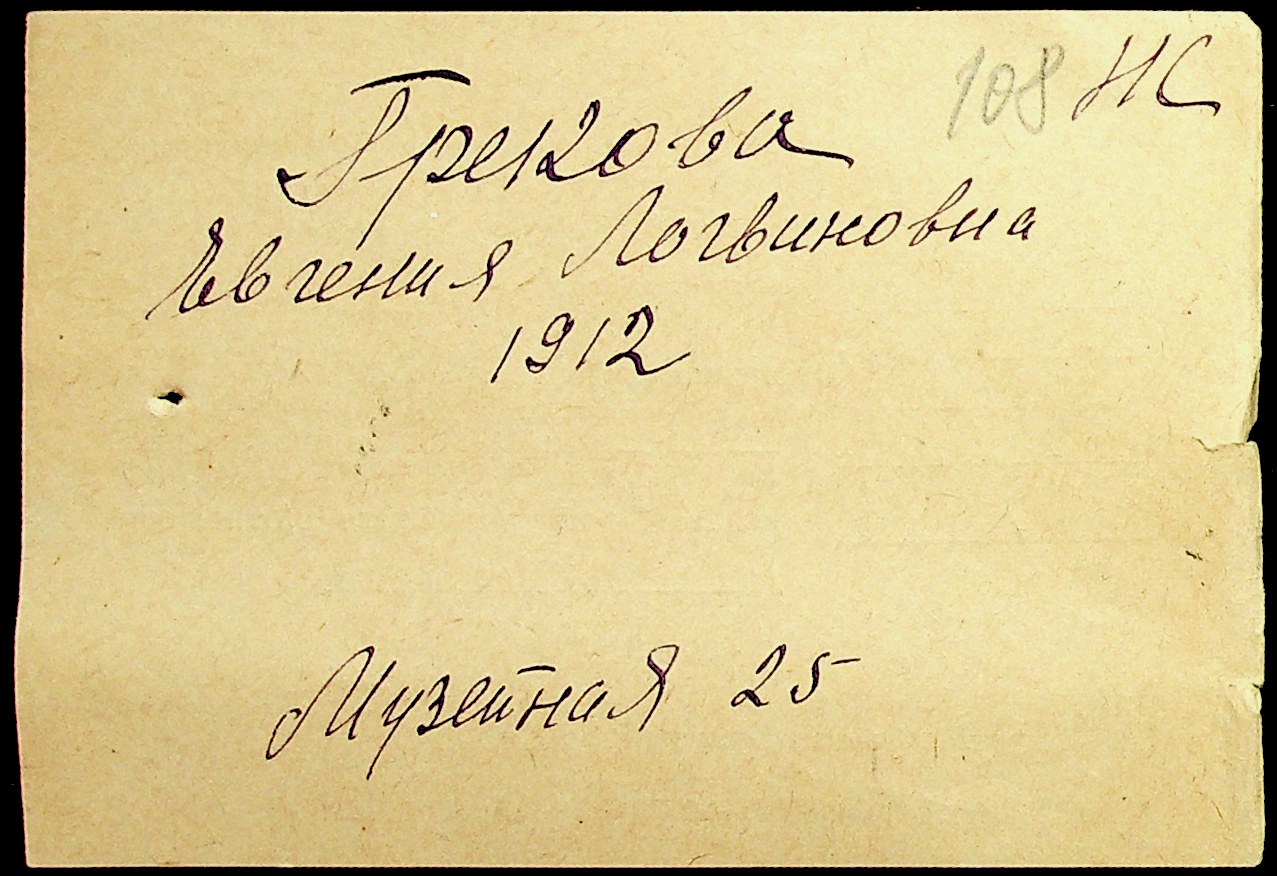 108 НС
Грекова
Евгения Логвиновна
1912
Музейная 25